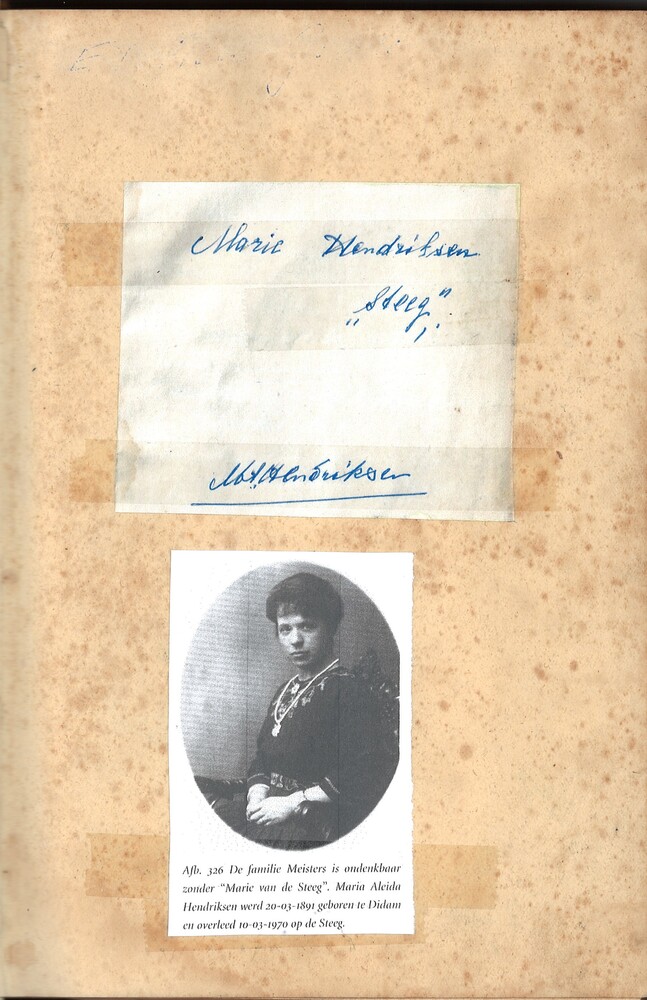 Marie Hendriksen
„Steeg”
Hendriksen
Afb. 326 De familie Meisters is ondenkbaar
zonder “Marie van de Steeg”. Maria Aleida
Hendriksen werd 20-03-1891 geboren te Didam
en overleed 10-03-1970 op de Steeg.